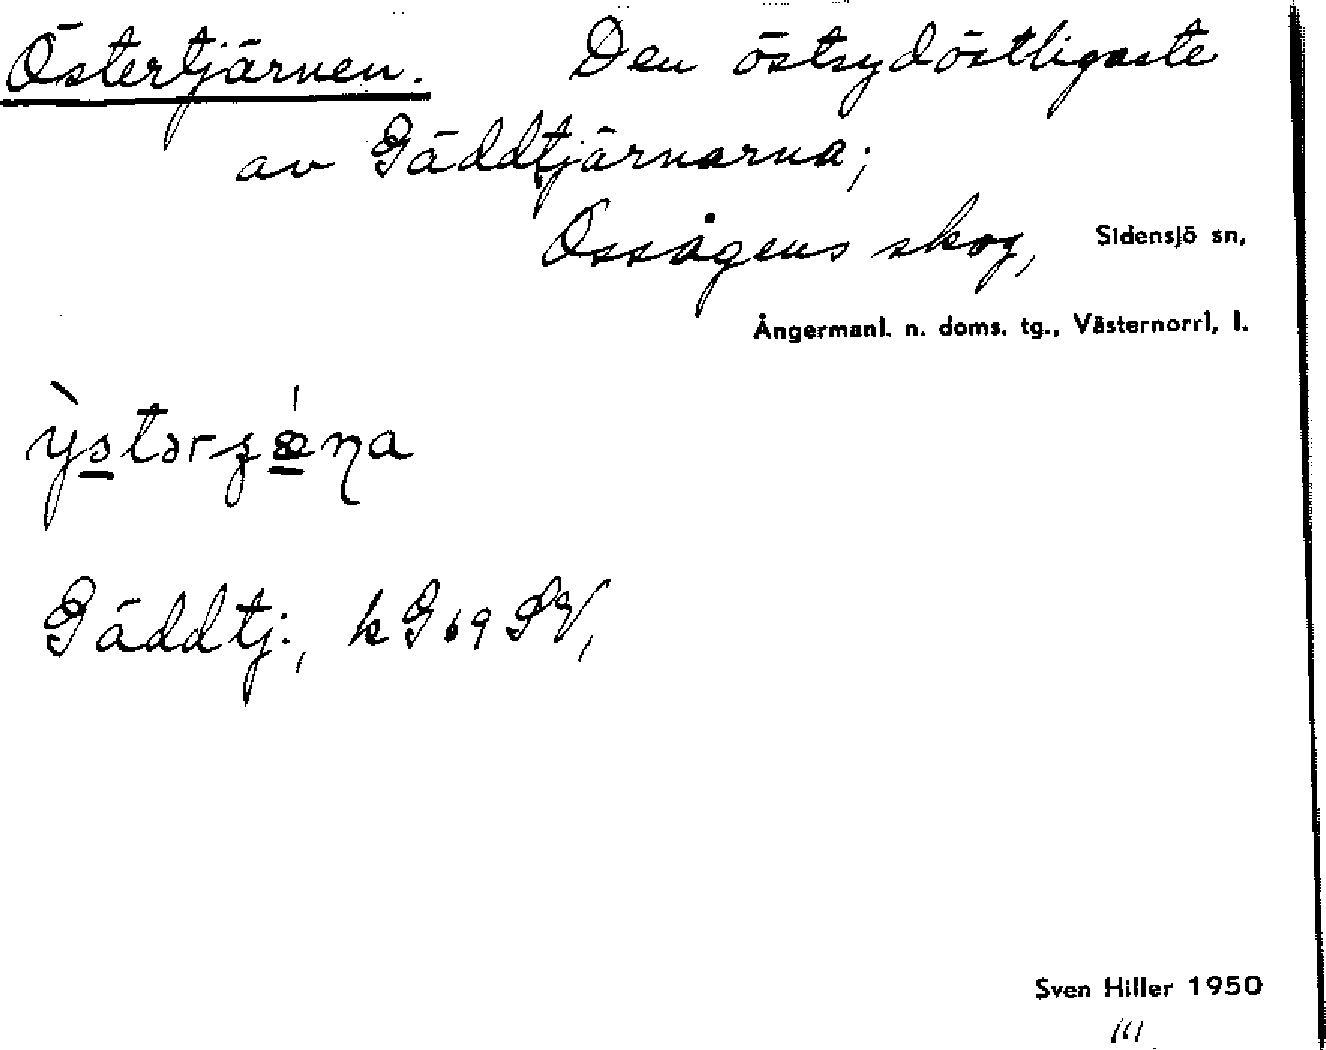 Östertjärnen. Den östsydöstligaste
av Gäddtjärnarna;
Ossågens skog, Sidensjö sn,
Ångermanl. n. doms. tg., Västernorrl. l.
Gäddtj., k G 69 SV,
Sven Hiller 1950